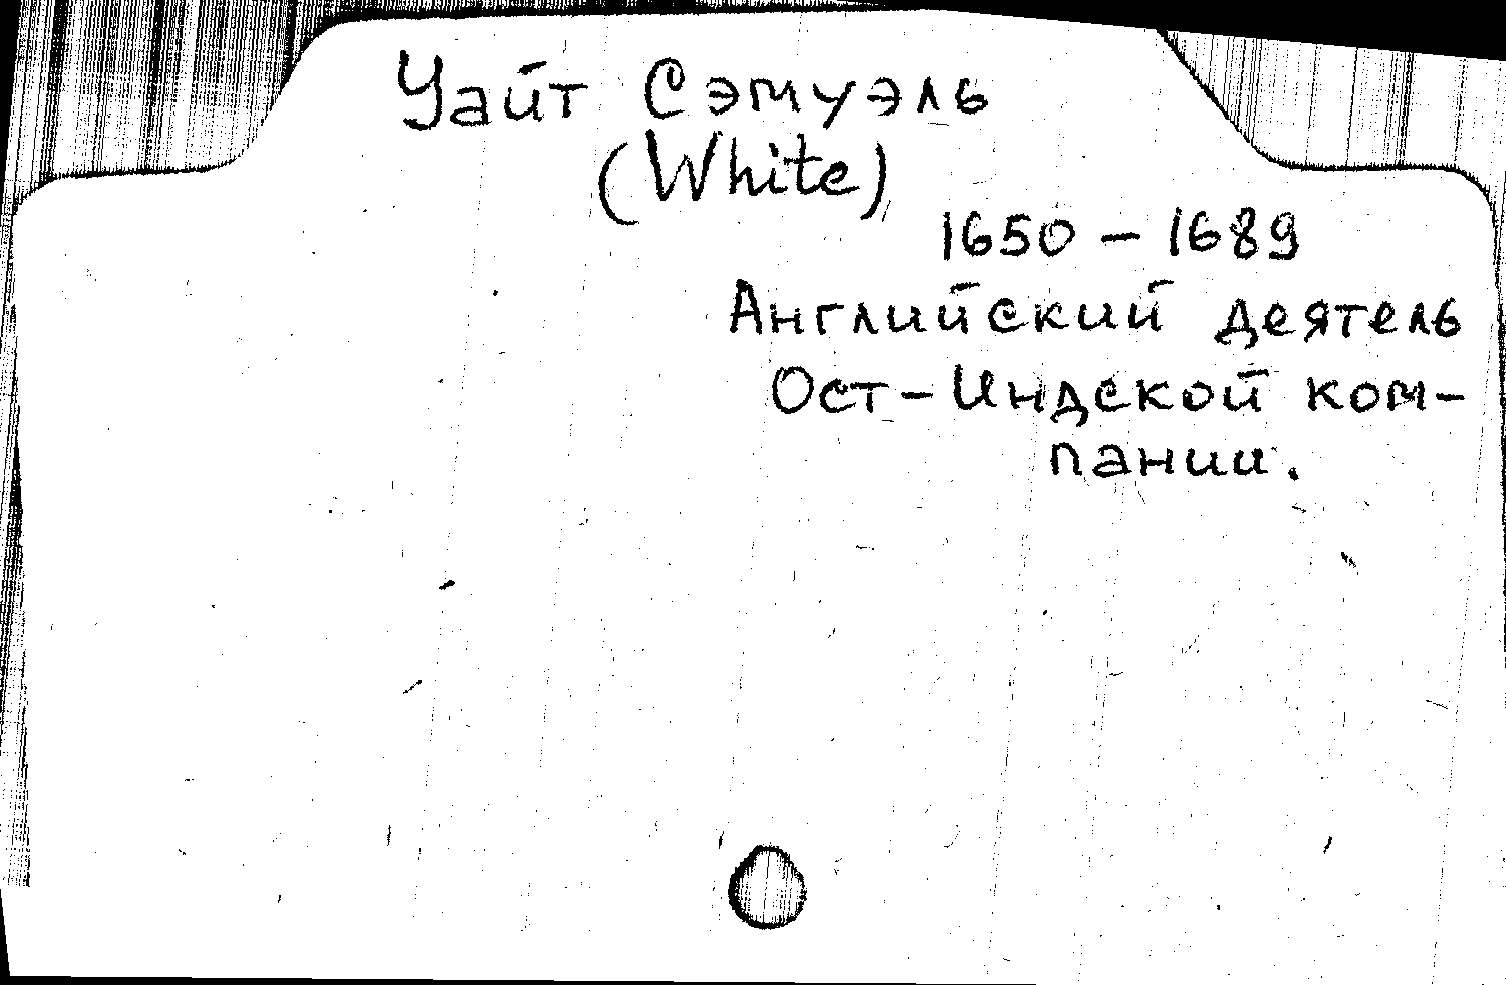 Уайт Сэмуэль
(White)
1650 - 1689
Английский деятель
Ост-Индской ком-
пании.